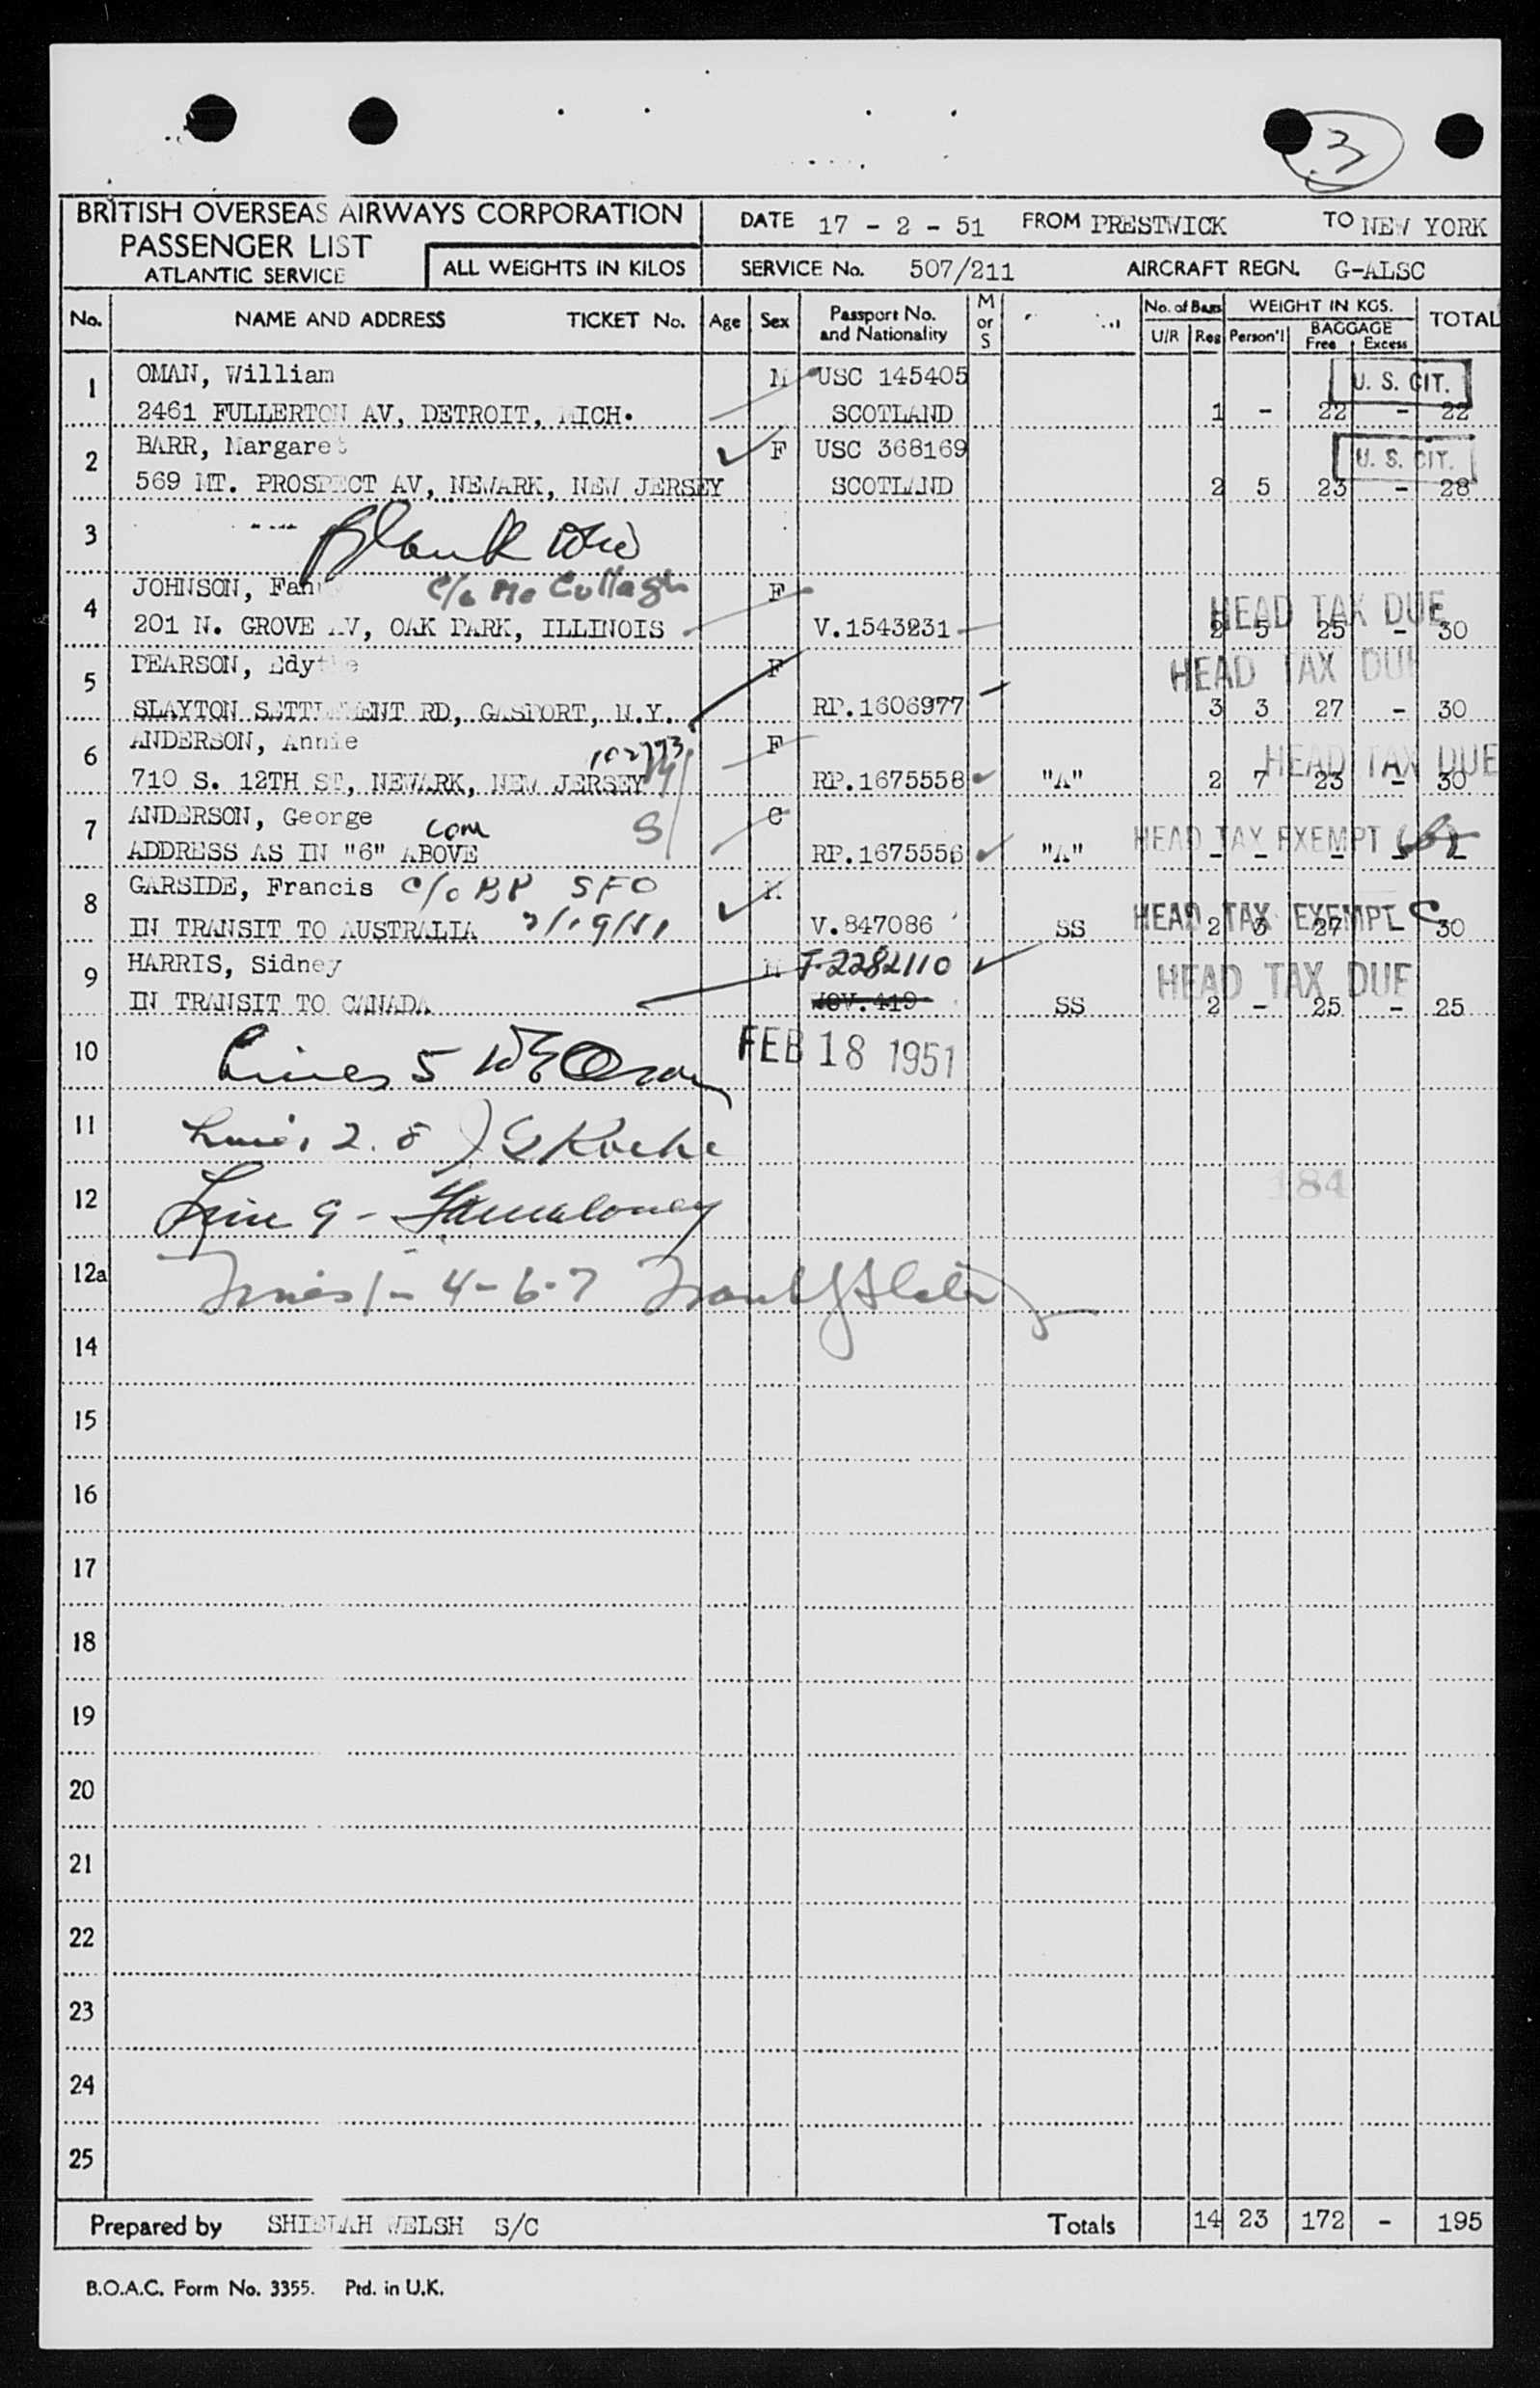 3
BRITISH OVERSEAS AIRWAYS CORPORATION
PASSENGER LIST
ATLANTIC SERVICE
ALL WEIGHTS IN KILOS
DATE 17 - 2 - 51 FROM PRESTWICK TO NEW YORK
SERVICE No. 507/211 AIRCRAFT REGN. G-ALSC
No. NAME AND ADDRESS TICKET No. Age Sex Passport No. and Nationality M or S No. of Bags U/R Reg WEIGHT IN KGS. Person'l BAGGAGE Free Excess TOTAL
1 OMAN, William M USC 145405 U. S. CIT.
2461 FULLERTON AV, DETROIT, MICH. SCOTLAND 1 - 22 - 22
2 BARR, Margaret F USC 368169 U. S. CIT.
569 MT. PROSPECT AV, NEWARK, NEW JERSEY SCOTLAND 2 5 23 - 28
3 Blank
4 JOHNSON, Fan c/o McCullagh F
201 N. GROVE AV, OAK PARK, ILLINOIS V.1543231 2 5 25 - 30 HEAD TAX DUE
5 PEARSON, Edythe F HEAD TAX DUE
SLAYTON SETTLEMENT RD, GASPORT, N.Y. RP.1606977 3 3 27 - 30
6 ANDERSON, Annie F HEAD TAX DUE
710 S. 12TH ST, NEWARK, NEW JERSEY RP.1675558 "A" 2 7 23 - 30
7 ANDERSON, George com S C HEAD TAX EXEMPT
ADDRESS AS IN "6" ABOVE RP.1675556 "A" - - - - -
8 GARSIDE, Francis c/o BP SFO M
IN TRANSIT TO AUSTRALIA 2/19/51 V.847086 SS HEAD TAX EXEMPT 2 3 27 30
9 HARRIS, Sidney M T-2282110 HEAD TAX DUE
IN TRANSIT TO CANADA SS 2 - 25 - 25
10 Lines 5 FEB 18 1951
11 Lines 2. 8
12 Line 9 - 184
12a Lines 1 - 4 - 6 - 7
14
15
16
17
18
19
20
21
22
23
24
25
Prepared by SHIELAH WELSH S/C Totals 14 23 172 - 195
B.O.A.C. Form No. 3355. Ptd. in U.K.